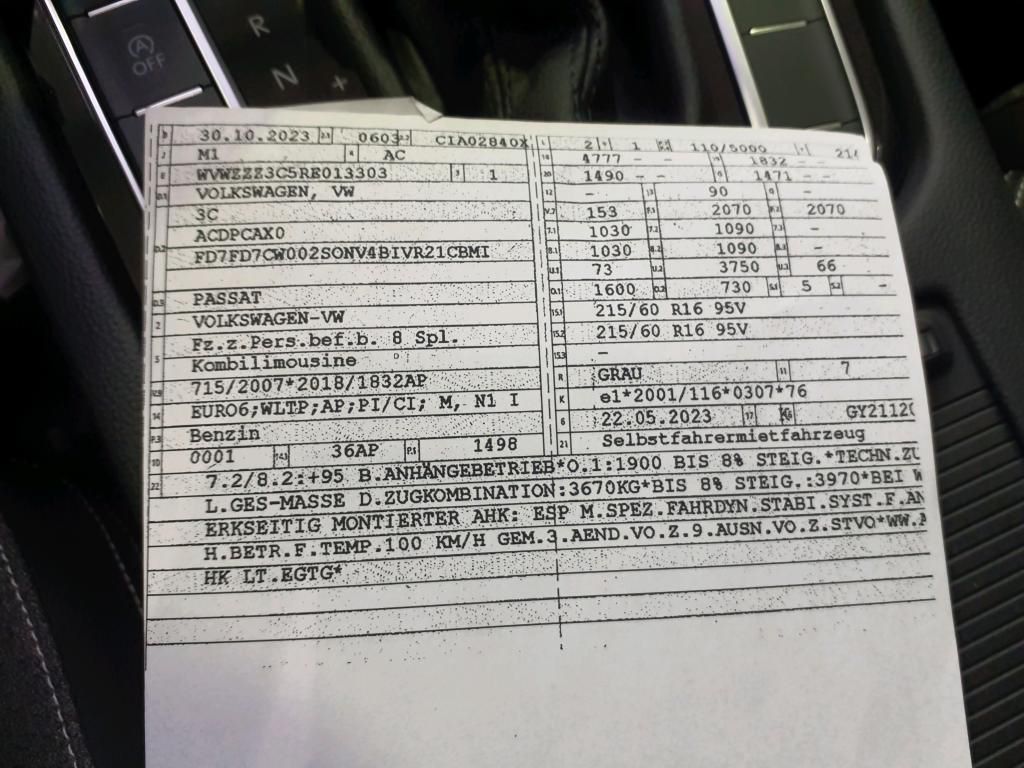 R
A
OFF
N
+
30.10.2023 0603 C1A02840X
M1 AC
WVWZZZ3C5RE013303 1
VOLKSWAGEN, VW
3C
ACDPCAX0
FD7FD7CW002SONV4BIVR21CBMI
PASSAT
VOLKSWAGEN-VW
Fz.z.Pers.bef.b. 8 Spl.
Kombilimousine
715/2007*2018/1832AP
EURO6;WLTP;AP;PI/CI; M, N1 I
Benzin
0001 14.1 36AP P.1 1498
2 1 110/5000
4777 - - 1832 - -
1490 - - 1471 - -
12 - 13 90 Q -
V.7 153 F.1 2070 F.2 2070
7.1 1030 7.2 1090 7.3 -
8.1 1030 8.2 1090 8.3 -
U.1 73 U.2 3750 U.3 66
O.1 1600 O.2 730 S.1 5 S.2 -
15.1 215/60 R16 95V
15.2 215/60 R16 95V
15.3 -
R GRAU 11 7
K e1*2001/116*0307*76
6 22.05.2023 17 16 GY2112
21 Selbstfahrermietfahrzeug
22 7.2/8.2:+95 B.ANHÄNGEBETRIEB*O.1:1900 BIS 8% STEIG.*TECHN.ZU
L.GES-MASSE D.ZUGKOMBINATION:3670KG*BIS 8% STEIG.:3970*BEI W
ERKSEITIG MONTIERTER AHK: ESP M.SPEZ.FAHRDYN.STABI.SYST.F.AN
H.BETR.F.TEMP.100 KM/H GEM.3.AEND.VO.Z.9.AUSN.VO.Z.STVO*WW.A
HK LT.EGTG*